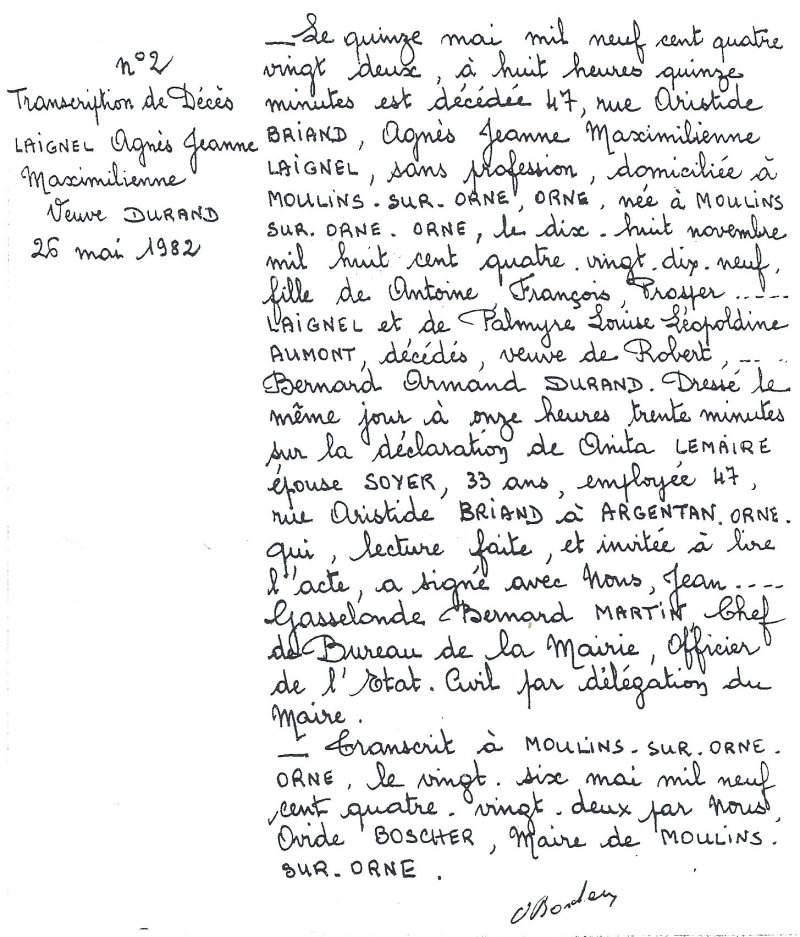 n°2
Transcription de Décès
LAIGNEL Agnès Jeanne
Maximilienne
Veuve DURAND
26 mai 1982
_ Le quinze mai mil neuf cent quatre
vingt deux, à huit heures quinze
minutes est décédée 47, rue Aristide
BRIAND, Agnès Jeanne Maximilienne
LAIGNEL, sans profession, domiciliée à
MOULINS-SUR-ORNE, ORNE, née à MOULINS
SUR-ORNE-ORNE, le dix-huit novembre
mil huit cent quatre-vingt-dix-neuf,
fille de Antoine, François, Prosper .....
LAIGNEL et de Palmyre Louise Léopoldine
AUMONT, décédés, veuve de Robert, ....
Bernard Armand DURAND. Dressé le
même jour à onze heures trente minutes
sur la déclaration de Anita LEMAIRE
épouse SOYER, 33 ans, employée 47,
rue Aristide BRIAND à ARGENTAN. ORNE.
qui, lecture faite, et invitée à lire
l'acte, a signé avec Nous, Jean ....
Gasselonde Bernard MARTIN, Chef
de Bureau de la Mairie, Officier
de l'Etat-Civil par délégation du
Maire.
_ Transcrit à MOULINS-SUR-ORNE-
ORNE, le vingt-six mai mil neuf
cent quatre-vingt-deux par Nous,
Ovide BOSCHER, Maire de MOULINS-
SUR-ORNE.